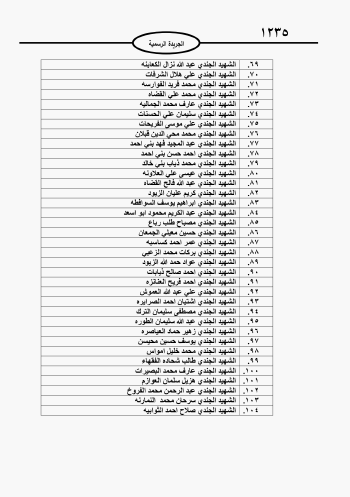 ١٢٣٥
الجريدة الرسمية
٦٩. الشهيد الجندي عبد الله نزال الكعابنه
٧٠. الشهيد الجندي علي هلال الشرفات
٧١. الشهيد الجندي محمد فريد الفوارسه
٧٢. الشهيد الجندي محمد علي القضاه
٧٣. الشهيد الجندي عارف محمد الجماليه
٧٤. الشهيد الجندي سليمان علي الحسنات
٧٥. الشهيد الجندي علي موسى الفريحات
٧٦. الشهيد الجندي محمد محي الدين قبلان
٧٧. الشهيد الجندي عبد المجيد فهد بني احمد
٧٨. الشهيد الجندي احمد حسن بني احمد
٧٩. الشهيد الجندي محمد ذياب بني خالد
٨٠. الشهيد الجندي عيسى علي العلاونه
٨١. الشهيد الجندي عبد الله فالح القضاه
٨٢. الشهيد الجندي كريم عليان الزيود
٨٣. الشهيد الجندي ابراهيم يوسف السواقطه
٨٤. الشهيد الجندي عبد الكريم محمود ابو اسعد
٨٥. الشهيد الجندي مصباح طلب رباع
٨٦. الشهيد الجندي حسين معيلي الجمعان
٨٧. الشهيد الجندي عمر احمد كساسبه
٨٨. الشهيد الجندي بركات محمد الزعبي
٨٩. الشهيد الجندي عواد حمد الله الزيود
٩٠. الشهيد الجندي احمد صالح ذيابات
٩١. الشهيد الجندي احمد فريح العنانزه
٩٢. الشهيد الجندي علي عبد الله العموش
٩٣. الشهيد الجندي اشتيان احمد الصرايره
٩٤. الشهيد الجندي مصطفى سليمان الترك
٩٥. الشهيد الجندي عبد الله سليمان الطوره
٩٦. الشهيد الجندي زهير حماد العياصره
٩٧. الشهيد الجندي يوسف حسين محيسن
٩٨. الشهيد الجندي محمد خليل امواس
٩٩. الشهيد الجندي طالب شحاده الفقهاء
١٠٠. الشهيد الجندي عارف محمد البصيرات
١٠١. الشهيد الجندي هزيل سلمان العوازم
١٠٢. الشهيد الجندي عبد الرحمن محمد الفروخ
١٠٣. الشهيد الجندي سرحان محمد النمارنه
١٠٤. الشهيد الجندي صلاح احمد الثوابيه